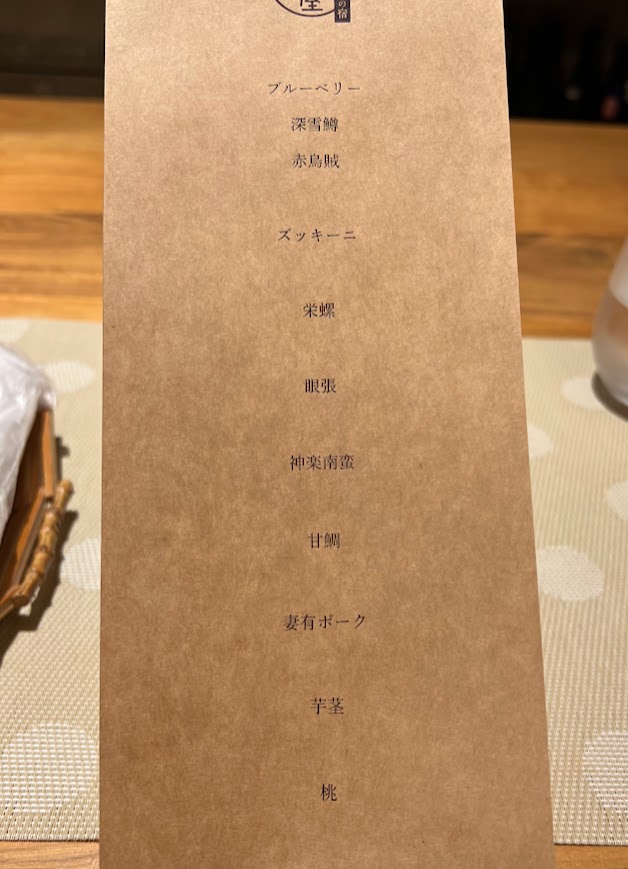 の宿
ブルーベリー
深雪鱒
赤烏賊
ズッキーニ
栄螺
眼張
神楽南蛮
甘鯛
妻有ポーク
芋茎
桃